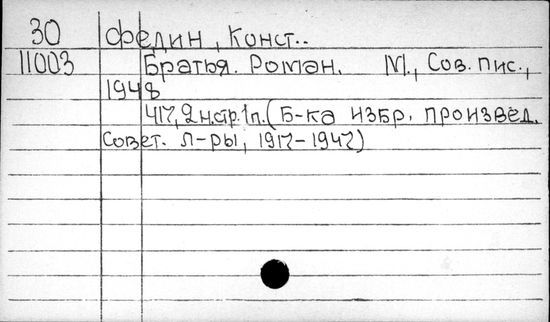 30 Федин, Конст..
11003 Братья. Роман. М., Сов. пис.,
1948
417, 2 н.стр. 1 п. (Б-ка избр. произвед.
Совет. л-ры, 1917-1947)